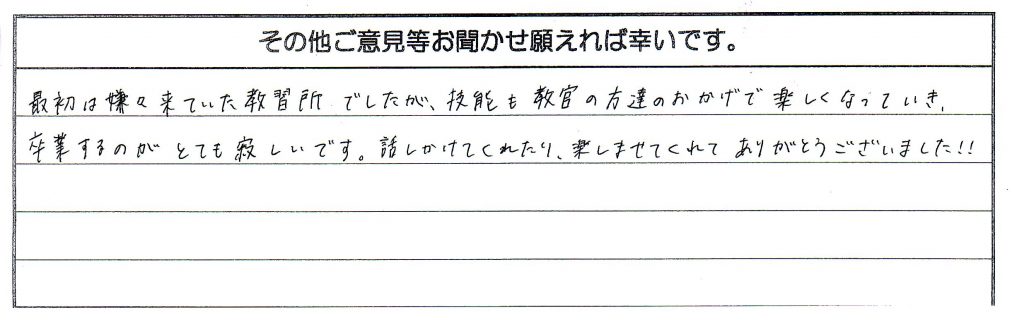 その他ご意見等お聞かせ願えれば幸いです。
最初は嫌々来ていた教習所でしたが、技能も教官の方達のおかげで楽しくなっていき、
卒業するのがとても寂しいです。話しかけてくれたり、楽しませてくれてありがとうございました!!